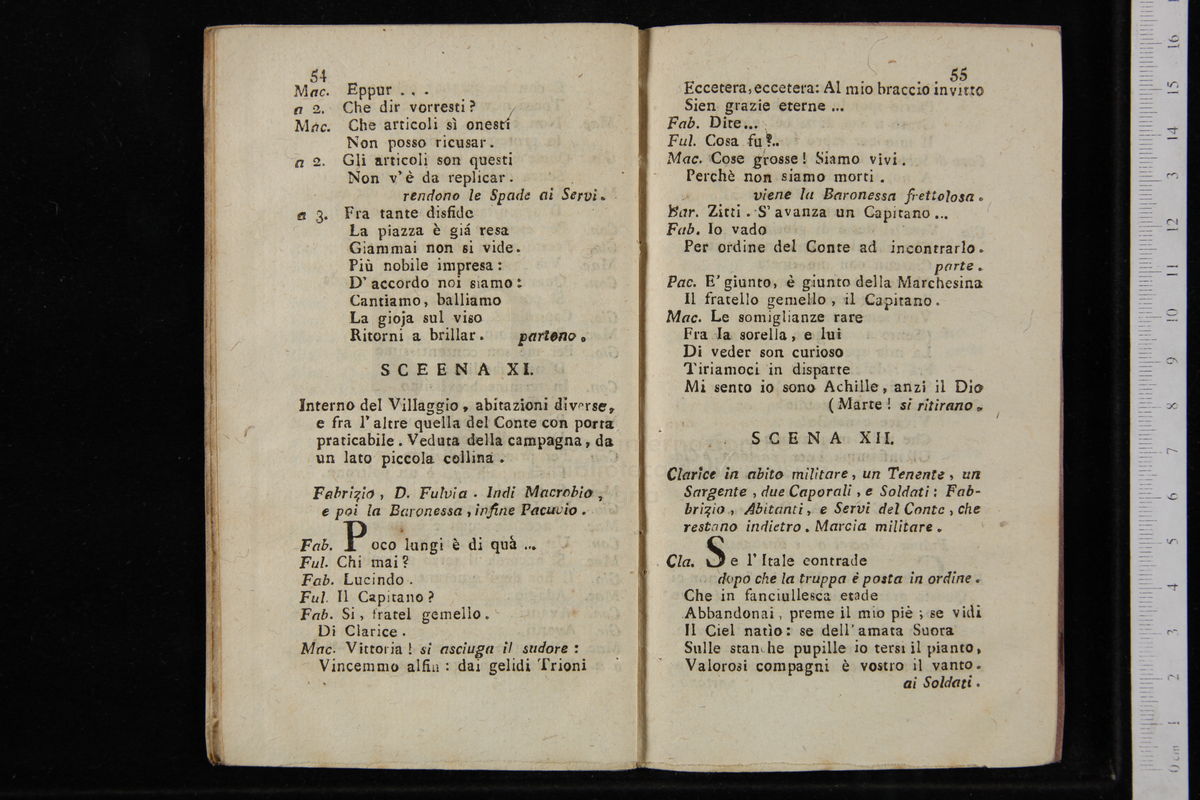 54
Mac. Eppur . . .
a 2. Che dir vorresti ?
Mac. Che articoli sì onesti
Non posso ricusar .
a 2. Gli articoli son questi
Non v'è da replicar .
rendono le Spade ai Servi .
a 3. Fra tante disfide
La piazza è giá resa
Giammai non si vide .
Più nobile impresa :
D'accordo noi siamo :
Cantiamo , balliamo
La gioja sul viso
Ritorni a brillar . partono .
SCEENA XI.
Interno del Villaggio , abitazioni diverse,
e fra l'altre quella del Conte con porta
praticabile . Veduta della campagna , da
un lato piccola collina .
Fabrizio , D. Fulvia . Indi Macrobio ,
e poi la Baronessa , infine Pacuvio .
Fab. Poco lungi è di quà ...
Ful. Chi mai ?
Fab. Lucindo .
Ful. Il Capitano ?
Fab. Si , fratel gemello .
Di Clarice .
Mac. Vittoria ! si asciuga il sudore :
Vincemmo alfin : dai gelidi Trioni
55
Eccetera, eccetera: Al mio braccio invitto
Sien grazie eterne ...
Fab. Dite...
Ful. Cosa fu ?..
Mac. Cose grosse ! Siamo vivi .
Perchè non siamo morti .
viene la Baronessa frettolosa .
Bar. Zitti . S'avanza un Capitano ...
Fab. Io vado
Per ordine del Conte ad incontrarlo .
parte .
Pac. E' giunto, è giunto della Marchesina
Il fratello gemello , il Capitano .
Mac. Le somiglianze rare
Fra la sorella , e lui
Di veder son curioso
Tiriamoci in disparte
Mi sento io sono Achille , anzi il Dio
( Marte ! si ritirano .
SCENA XII.
Clarice in abito militare , un Tenente , un
Sargente , due Caporali , e Soldati : Fab-
brizio , Abitanti , e Servi del Conte , che
restano indietro . Marcia militare .
Cla. Se l'Itale contrade
dopo che la truppa è posta in ordine .
Che in fanciullesca etade
Abbandonai , preme il mio piè ; se vidi
Il Ciel natìo : se dell'amata Suora
Sulle stanche pupille io tersi il pianto,
Valorosi compagni è vostro il vanto .
ai Soldati .
16
15
14
13
12
11
10
9
8
7
6
5
4
3
2
1
0 cm